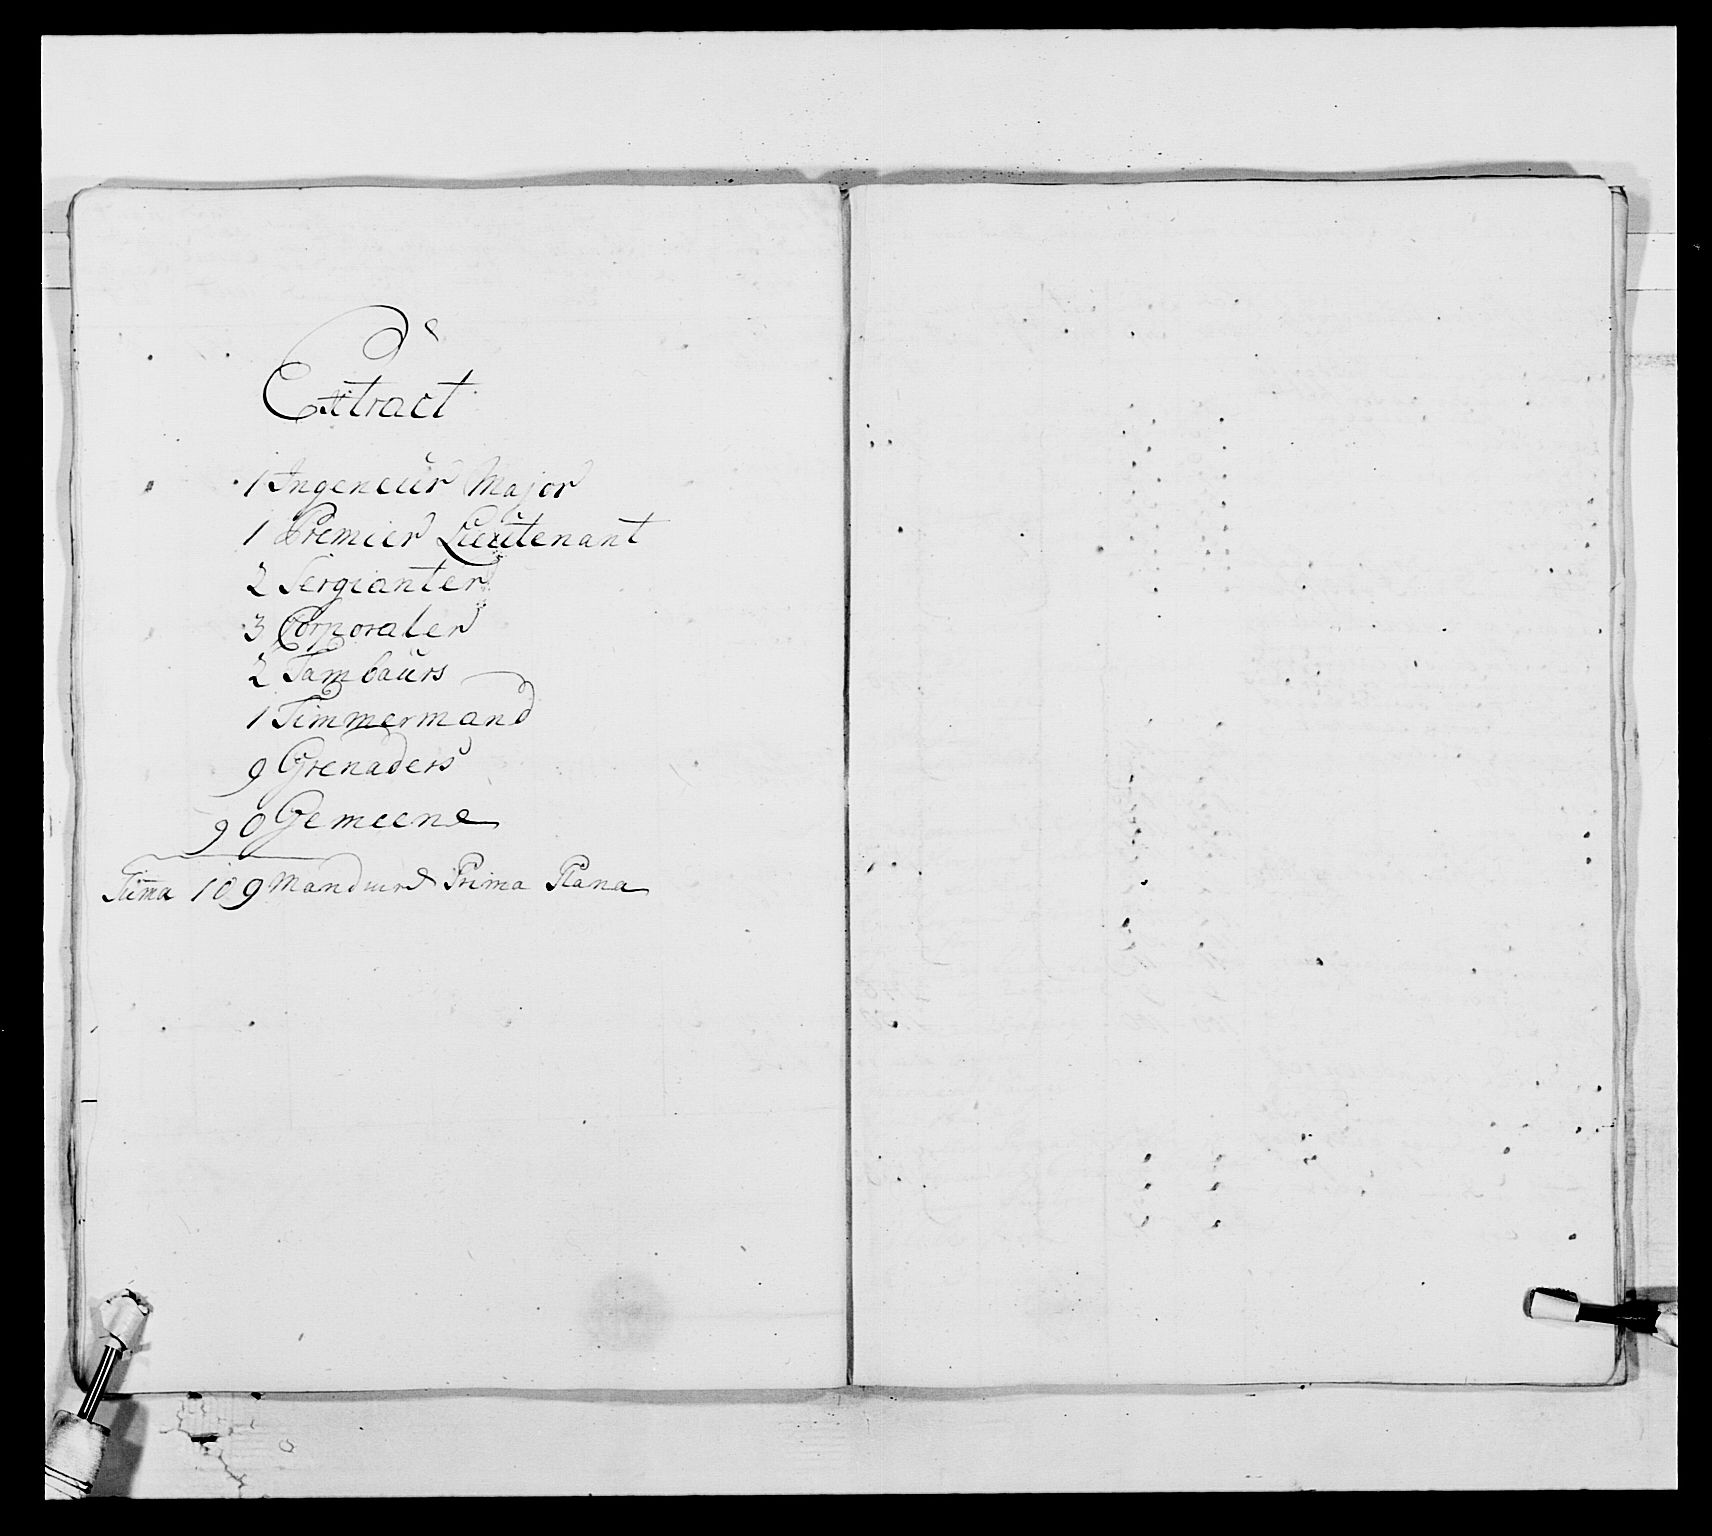 Extract
1 Ingeneur Major
1 Premier Lieutenant
2 Sergianter
3 Corporaler
2 Tambaurs
1 Timmermand
9 Grenaders
90 Gemeene
Sum̄a 109 Mand uden Prima Plana